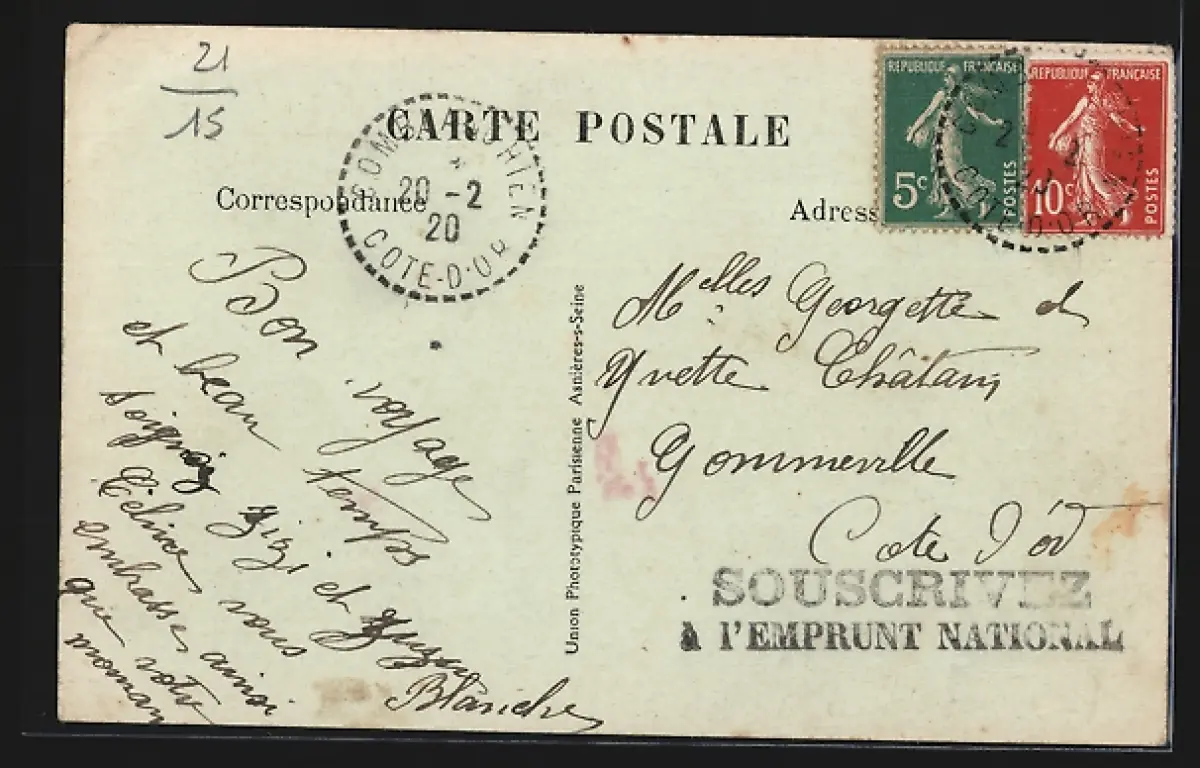 21
15
CARTE POSTALE
Correspondance
Adress
REPUBLIQUE FRANÇAISE
5c
POSTES
REPUBLIQUE FRANÇAISE
10c
POSTES
20 -2
20
COTE-D'OR
Melles Georgette et
Yvette
Gommerville
Cote d'or
SOUSCRIVEZ
à l'EMPRUNT NATIONAL
Union Photótypique Parisienne Asnières-s-Seine
Bon voyage
et beau temps
soignez Zizi et
Céline vous
embrasse ainsi
que votre
moman
Blanche